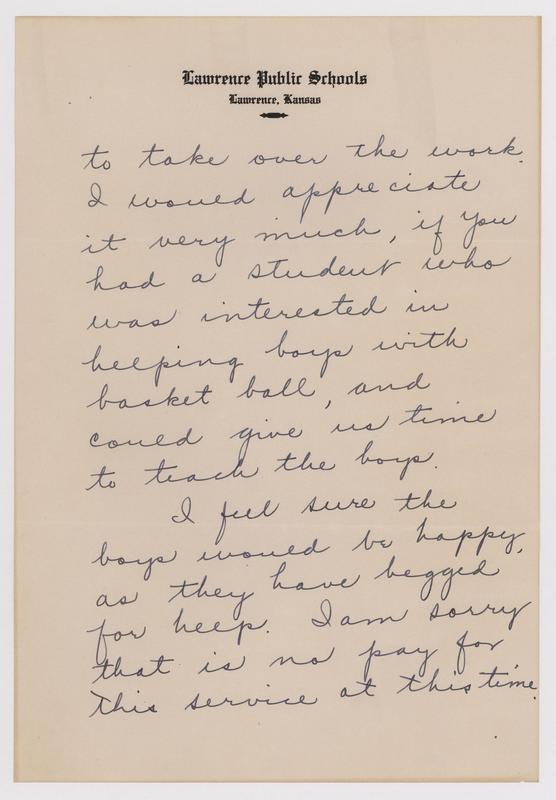 Lawrence Public Schools
Lawrence, Kansas
to take over the work.
I would appreciate
it very much, if you
had a student who
was interested in
helping boys with
basket ball, and
could give us time
to teach the boys.
I feel sure the
boys would be happy,
as they have begged
for help. I am sorry
that is no pay for
this service at this time.